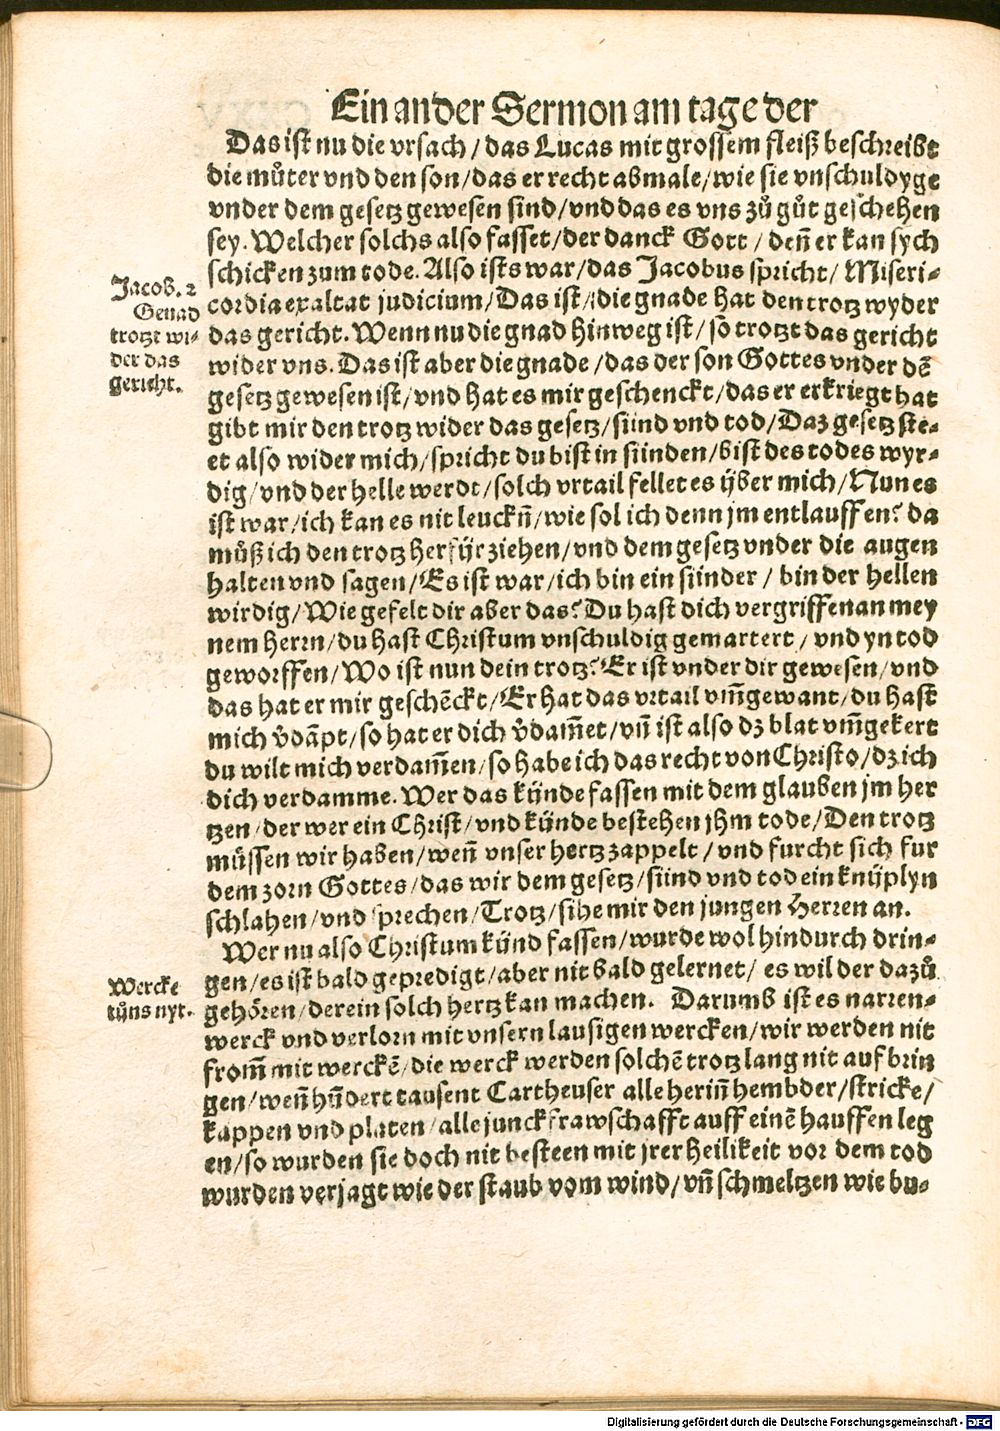 Ein ander Sermon am tage der
Das ist nu die vrsach/das Lucas mit grossem fleiß beschreibt
die můter vnd den son/das er recht abmale/wie sie vnschuldyge
vnder dem gesetz gewesen sind/vnd das es vns zů gůt geschehen
sey. Welcher solchs also fasset/der danck Gott/ deñ er kan sych
schicken zum tode. Also ists war/das Jacobus spricht/ Miseri-
cordia exaltat judicium/Das ist/die gnade hat den trotz wyder
das gericht. Wenn nu die gnad hinweg ist/ so trotzt das gericht
wider vns. Das ist aber die gnade/das der son Gottes vnder dē
gesetz gewesen ist/vnd hat es mir geschenckt/das er erkriegt hat
gibt mir den trotz wider das gesetz/sünd vnd tod/Daz gesetz ste-
et also wider mich/spricht du bist in sünden/bist des todes wyr-
dig/vnd der helle werdt/solch vrtail fellet es über mich/Nun es
ist war/ich kan es nit leuckñ/wie sol ich denn jm entlauffen? da
můß ich den trotz herfür ziehen/vnd dem gesetz vnder die augen
halten vnd sagen/Es ist war/ich bin ein sünder/ bin der hellen
wirdig/Wie gefelt dir aber das? Du hast dich vergriffen an mey
nem herrn/du hast Christum vnschuldig gemartert/ vnd yn tod
geworffen/Wo ist nun dein trotz? Er ist vnder dir gewesen/vnd
das hat er mir geschēckt/Er hat das vrtail vm̃gewant/du hast
mich v̊dāpt/so hat er dich v̊dam̃et/vñ ist also dz blat vm̃gekert
du wilt mich verdam̃en/so habe ich das recht von Christo/dz ich
dich verdamme. Wer das künde fassen mit dem glauben jm her
tzen/der wer ein Christ/vnd künde bestehen jhm tode/Den trotz
müssen wir haben/weñ vnser hertz zappelt/vnd furcht sich fur
dem zorn Gottes/das wir dem gesetz/sünd vnd tod ein knüplyn
schlahen/vnd sprechen/Trotz/sihe mir den jungen Herren an.
Wer nu also Christum künd fassen/wurde wol hindurch drin-
gen/es ist bald gepredigt/aber nit bald gelernet/ es wil der dazů
gehören/der ein solch hertz kan machen. Darumb ist es narren-
werck vnd verlorn mit vnsern lausigen wercken/wir werden nit
from̃ mit werckē/die werck werden solchē trotz lang nit auf brin
gen/weñ hũdert tausent Cartheuser alle heriñ hembder/stricke/
kappen vnd platen/alle junckfrawschafft auff einē hauffen leg
en/so wurden sie doch nit besteen mit jrer heilikeit vor dem tod
wurden verjagt wie der staub vom wind/vñ schmeltzen wie bu-
Jacob. 2
Genad
trotzt wi-
der das
gericht.
Wercke
tůns nyt.
Digitalisierung gefördert durch die Deutsche Forschungsgemeinschaft - DFG